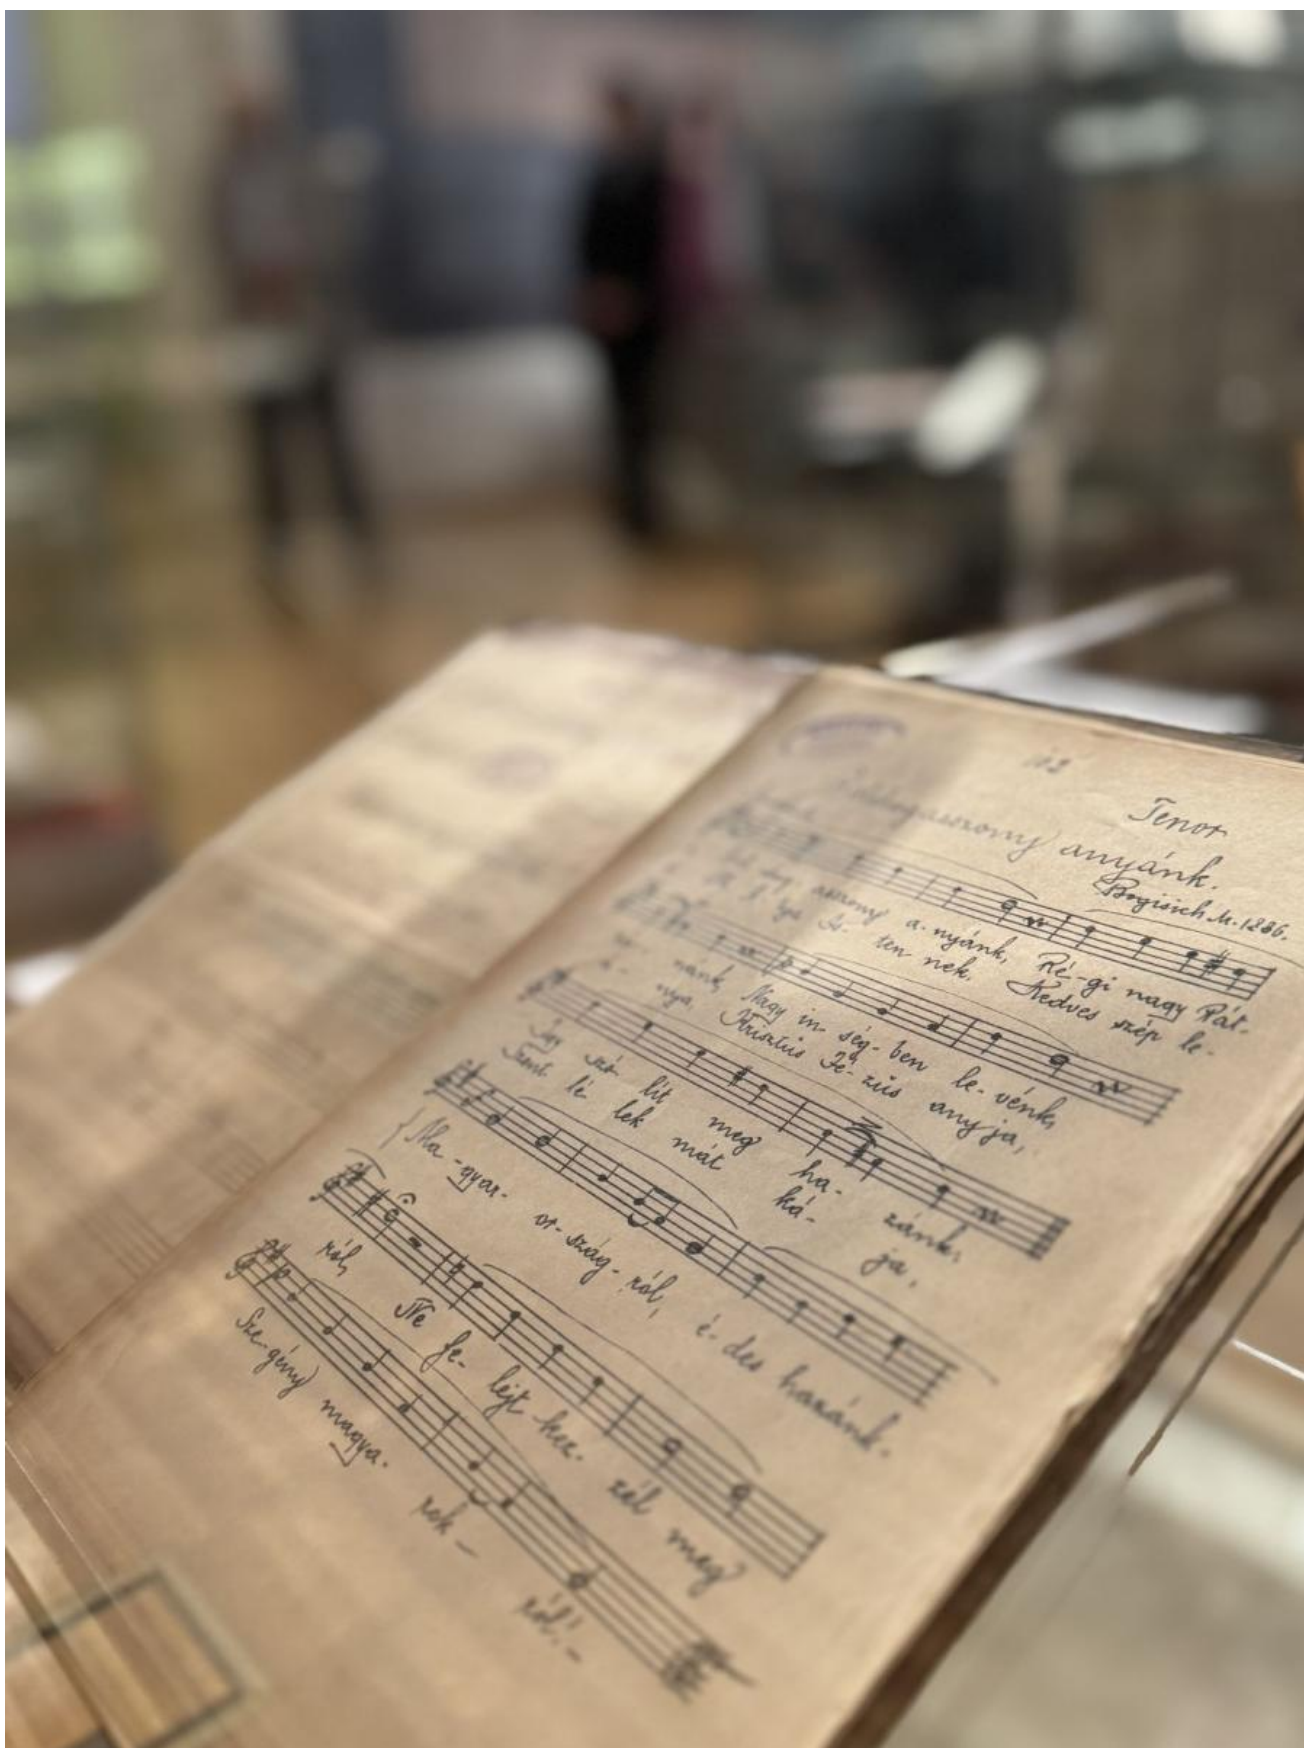 Tenor
anyánk.
Bogisich M. 1886.
asszony a-nyánk, Ré-gi nagy Pát-
Is- ten nek. Kedves szép le-
nánk, Nagy in-ség-ben le-vénk,
nya, Krisztus Jé-zus anyja,
Így szó lít meg ha- zánk.
Szent lé lek mát ká- ja,
Ma-gyar- or-szág-ról, é-des hazánk-
ról, Ne fe- lejt kez- zél meg
Sze-gény magya- rok- ról!-